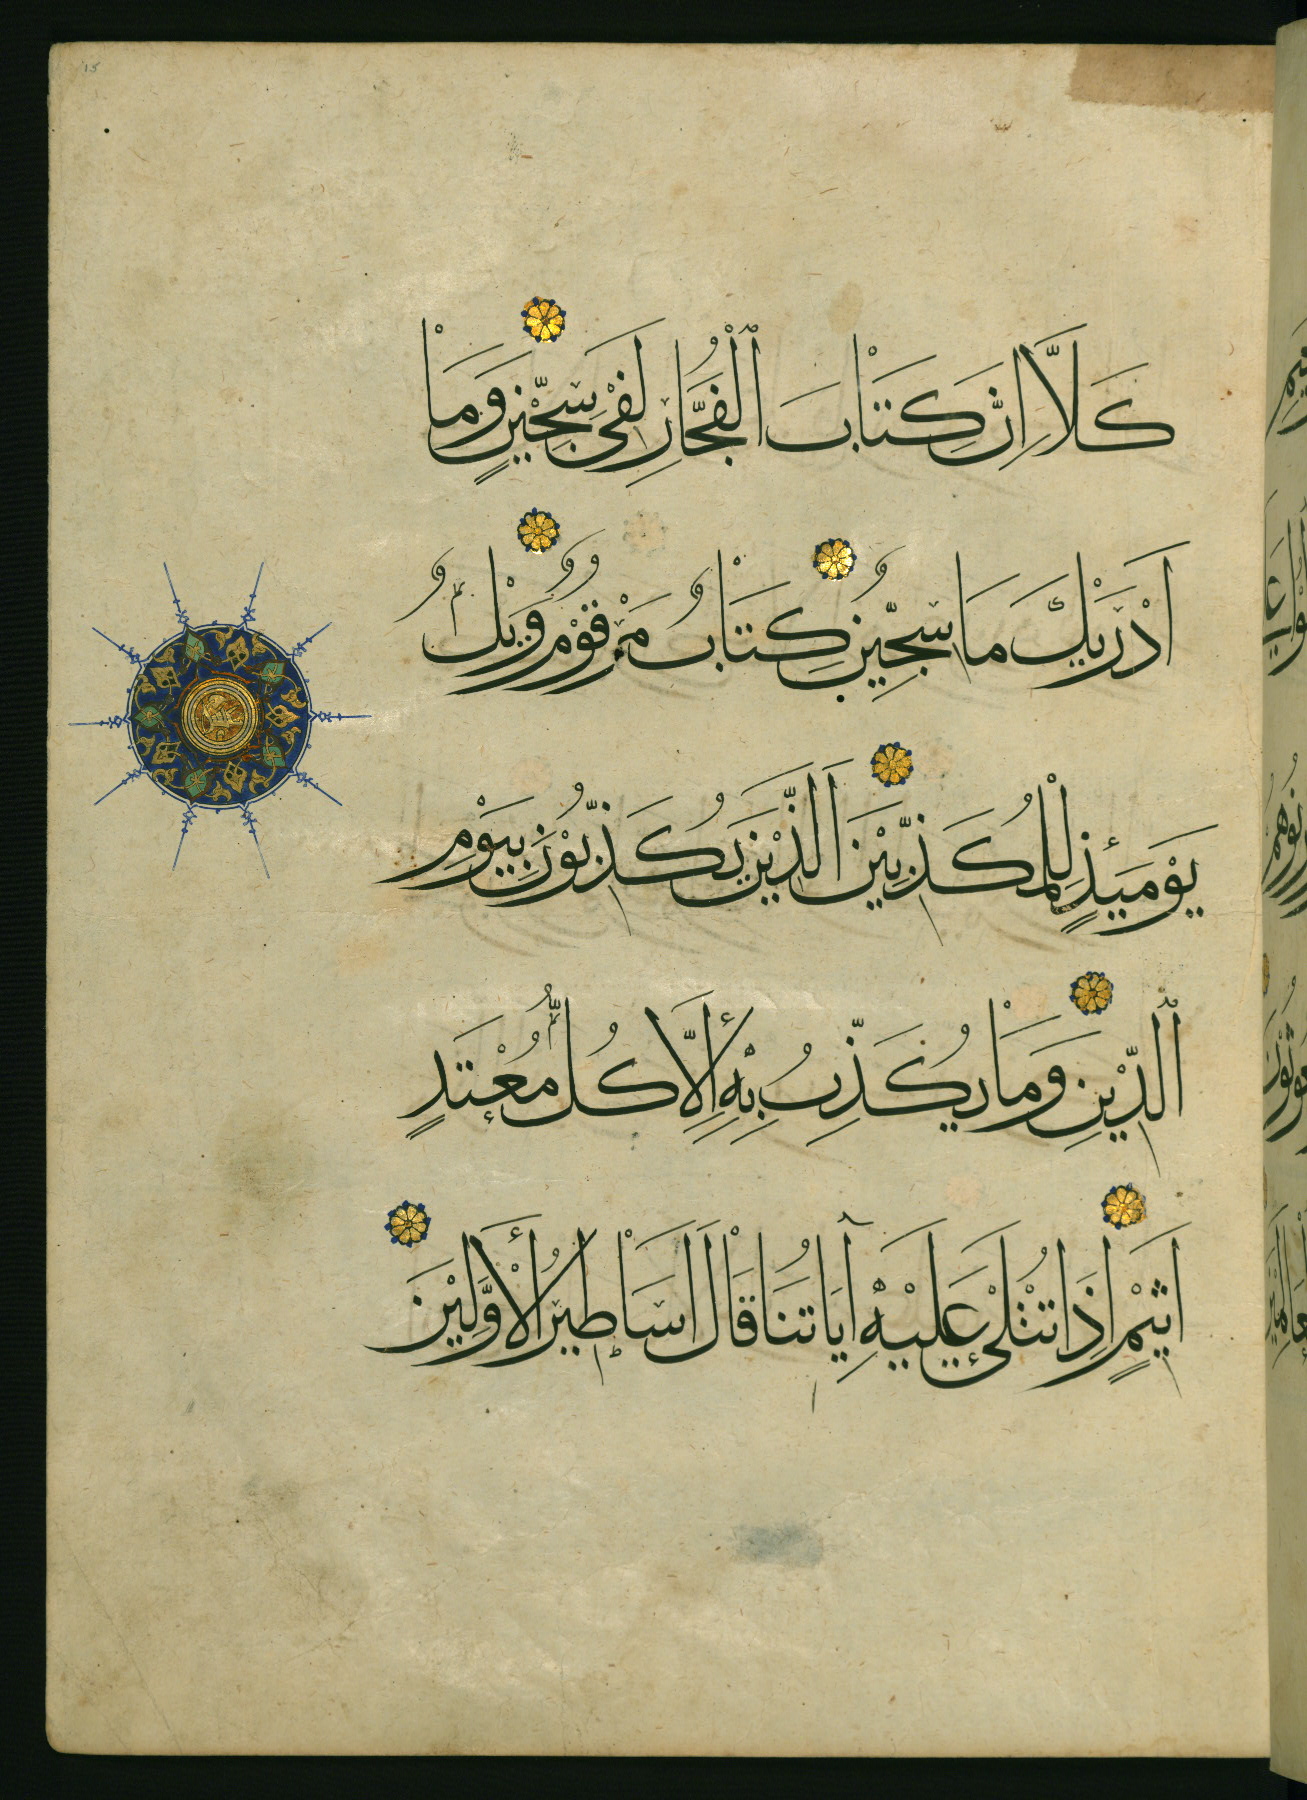 كَلَّا اِنَّ كِتَابَ ٱلْفُجَّارِ لَفِىْ سِجِّيْنٍ وَمَا
اَدْرَيٰكَ مَا سِجِّيْنٌ كِتَابٌ مَرْقُوْمٌ وَيْلٌ
يَوْمَئِذٍ لِلْمُكَذِّبِيْنَ اَلَّذِيْنَ يُكَذِّبُوْنَ بِيَوْمِ
ٱلدِّيْنِ وَمَا يُكَذِّبُ بِهِ اِلَّا كُلُّ مُعْتَدٍ
اَثِيْمٍ اِذَا تُتْلَىٰ عَلَيْهِ آيَاتُنَا قَالَ اَسَاطِيْرُ الْاَوَّلِيْنَ
15